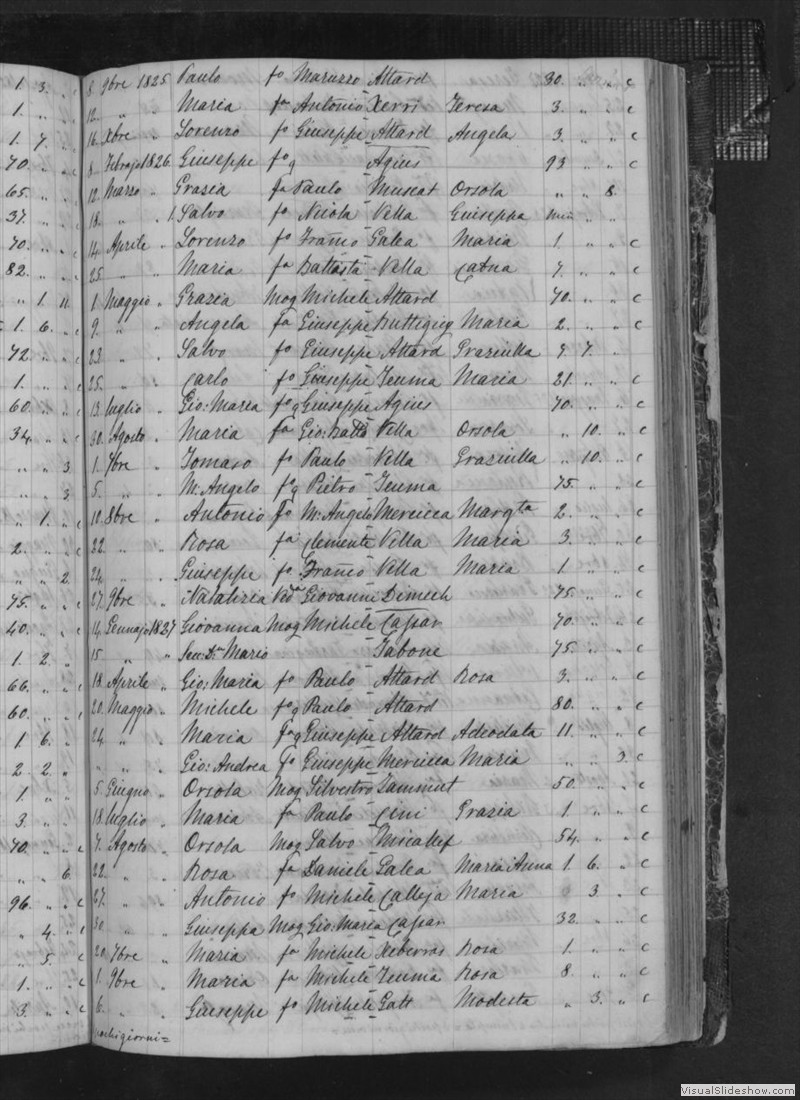 1. 3. " c 8. 9bre 1825 Paulo fo Maruzzo Attard 30. " " c
1. " " 12. " " Maria fa Antonio Xerri Teresa 3. " " c
1. 7. " c 16. Xbre " Lorenzo fo Giuseppe Attard Angela 3. " " c
70. " " c 8. Febrajo 1826. Giuseppe fo Agius 93 " " c
65. " " c 12. Marzo " Grazia fa Paulo Muscat Orsola " " 8.
37. " " c 18. " " 1. Salvo fo Nicola Vella Guiseppa " "
70. " " c 14. Aprile " Lorenzo fo Franco Galea Maria 1. " " c
82. " " c 25. " " Maria fa Battista Vella Catna 7. " " c
" 1. 11. 1. Maggio " Grazia Mog Michele Attard 70. " " c
1. 6. " c 9. " " Angela fa Giuseppe Buttigieg Maria 2. " " c
72. " " c 23. " " Salvo fo Giuseppe Attard Graziulla 9 7. "
1. " " c 25. " " Carlo fo Giuseppe Zeuma Maria 21. " " c
60. " " c 13. luglio " Gio: Maria fo Giuseppe Agius 70. " " c
34 " " c 30. Agosto " Maria fa Gio: Batta Vella Orsola " 10. " c
" " 3 1. 7bre " Tomaso fo Paulo Vella Graziulla " 10. " c
" " 3 5. " " Ml Angelo fo Pietro Zeuma 75. " " c
" 1. " c 10. 8bre " Antonio fo Ml Angelo Mercieca Margta 2. " " c
2. " " c 22. " " Rosa fa Clemente Vella Maria 3. " " c
" " 2. 24. " " Giuseppe fo Franco Vella Maria 1 " " c
75. " " c 27. 9bre " Natalizia Veda Giovanni Dimech 75. " " c
40. " " c 14. Gennajo 1827 Giovanna Mog Michele Cassar 70. " " c
1. 2. " 15 " " Mario Tabone 75. " " c
66. " " c 18. Aprile " Gio: Maria fo Paulo Attard Rosa 3. " " c
60. " " c 20. Maggio " Michele fo Paulo Attard 80. " " c
1. 6. " c 24. " " Maria fa Giuseppe Attard Adeodata 11. " " c
2. 2. " " " " Gio: Andrea fo Giuseppe Mercieca Maria " " 3. c
1. " " 5. Giugno " Orsola Mog Silvestro Zammut 50. " " c
3. " " 18. luglio " Maria fa Paulo Cini Grazia 1. " " c
70. " " c 7. Agosto " Orsola Mog Salvo Micallef 54. " " c
" " 6. 22. " " Rosa fa Daniele Galea Maria Anna 1. 6. " c
96. " " c 27. " " Antonio fo Michele Calleja Maria 3. " c
" 4. " c 30. " " Giuseppa Mog Gio: Maria Cassar 32. " " c
" 5. " c 20. 7bre " Maria fa Michele Xiberras Rosa 1. " " c
1. " " c 1. 9bre " Maria fa Michele Zeuma Rosa 8. " " c
3. " " c 6. " " Giuseppe fo Michele Gatt Modesta " 3. " c
pochi giorni =
VisualSlideshow.com